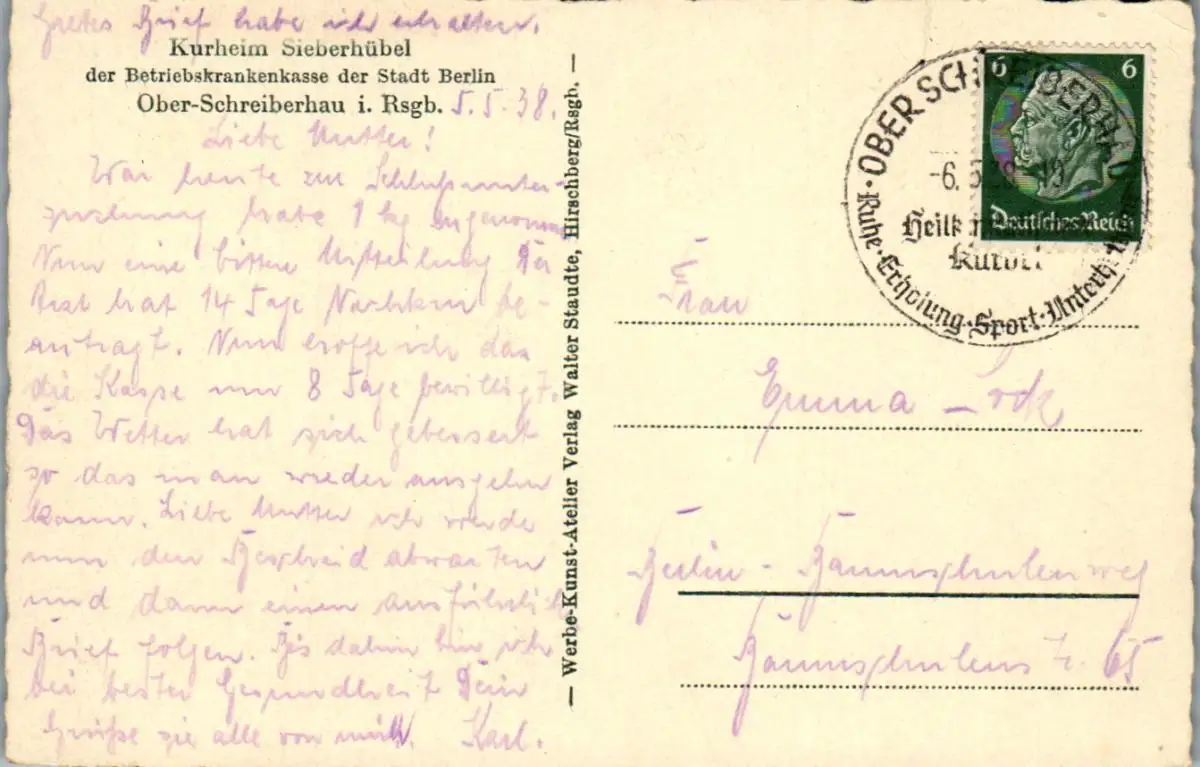 Gretes Brief habe ich erhalten.
Kurheim Sieberhübel
der Betriebskrankenkasse der Stadt Berlin
Ober-Schreiberhau i. Rsgb. 5.5.38.
Liebe Mutter!
War heute zur Schlußunter-
suchung habe 1 kg
Nun eine bittere Mitteilung Der
Arzt hat 14 Tage Nachkur be-
antragt. Nun hoffe ich das
die Kasse nur 8 Tage bewilligt.
Das Wetter hat sich gebessert
so das man wieder ausgehn
kann. Liebe Mutter ich werde
nun den Bescheid abwarten
und dann einen ausführlich
Brief folgen. Bis dahin bin ich
bei bester Gesundheit Dein
Grüße sie alle von mir. Karl.
— Werbe-Kunst-Atelier Verlag Walter Staudte, Hirschberg/Rsgb. —
6 6
Deutsches Reich
OBERSCHREIBERHAU
-6.5.38-19
Heilk
Kurort
Ruhe·Erholung·Sport·Unterh
Frau
Emma
Berlin - Baumschulenweg
Baumschulenstr. 65